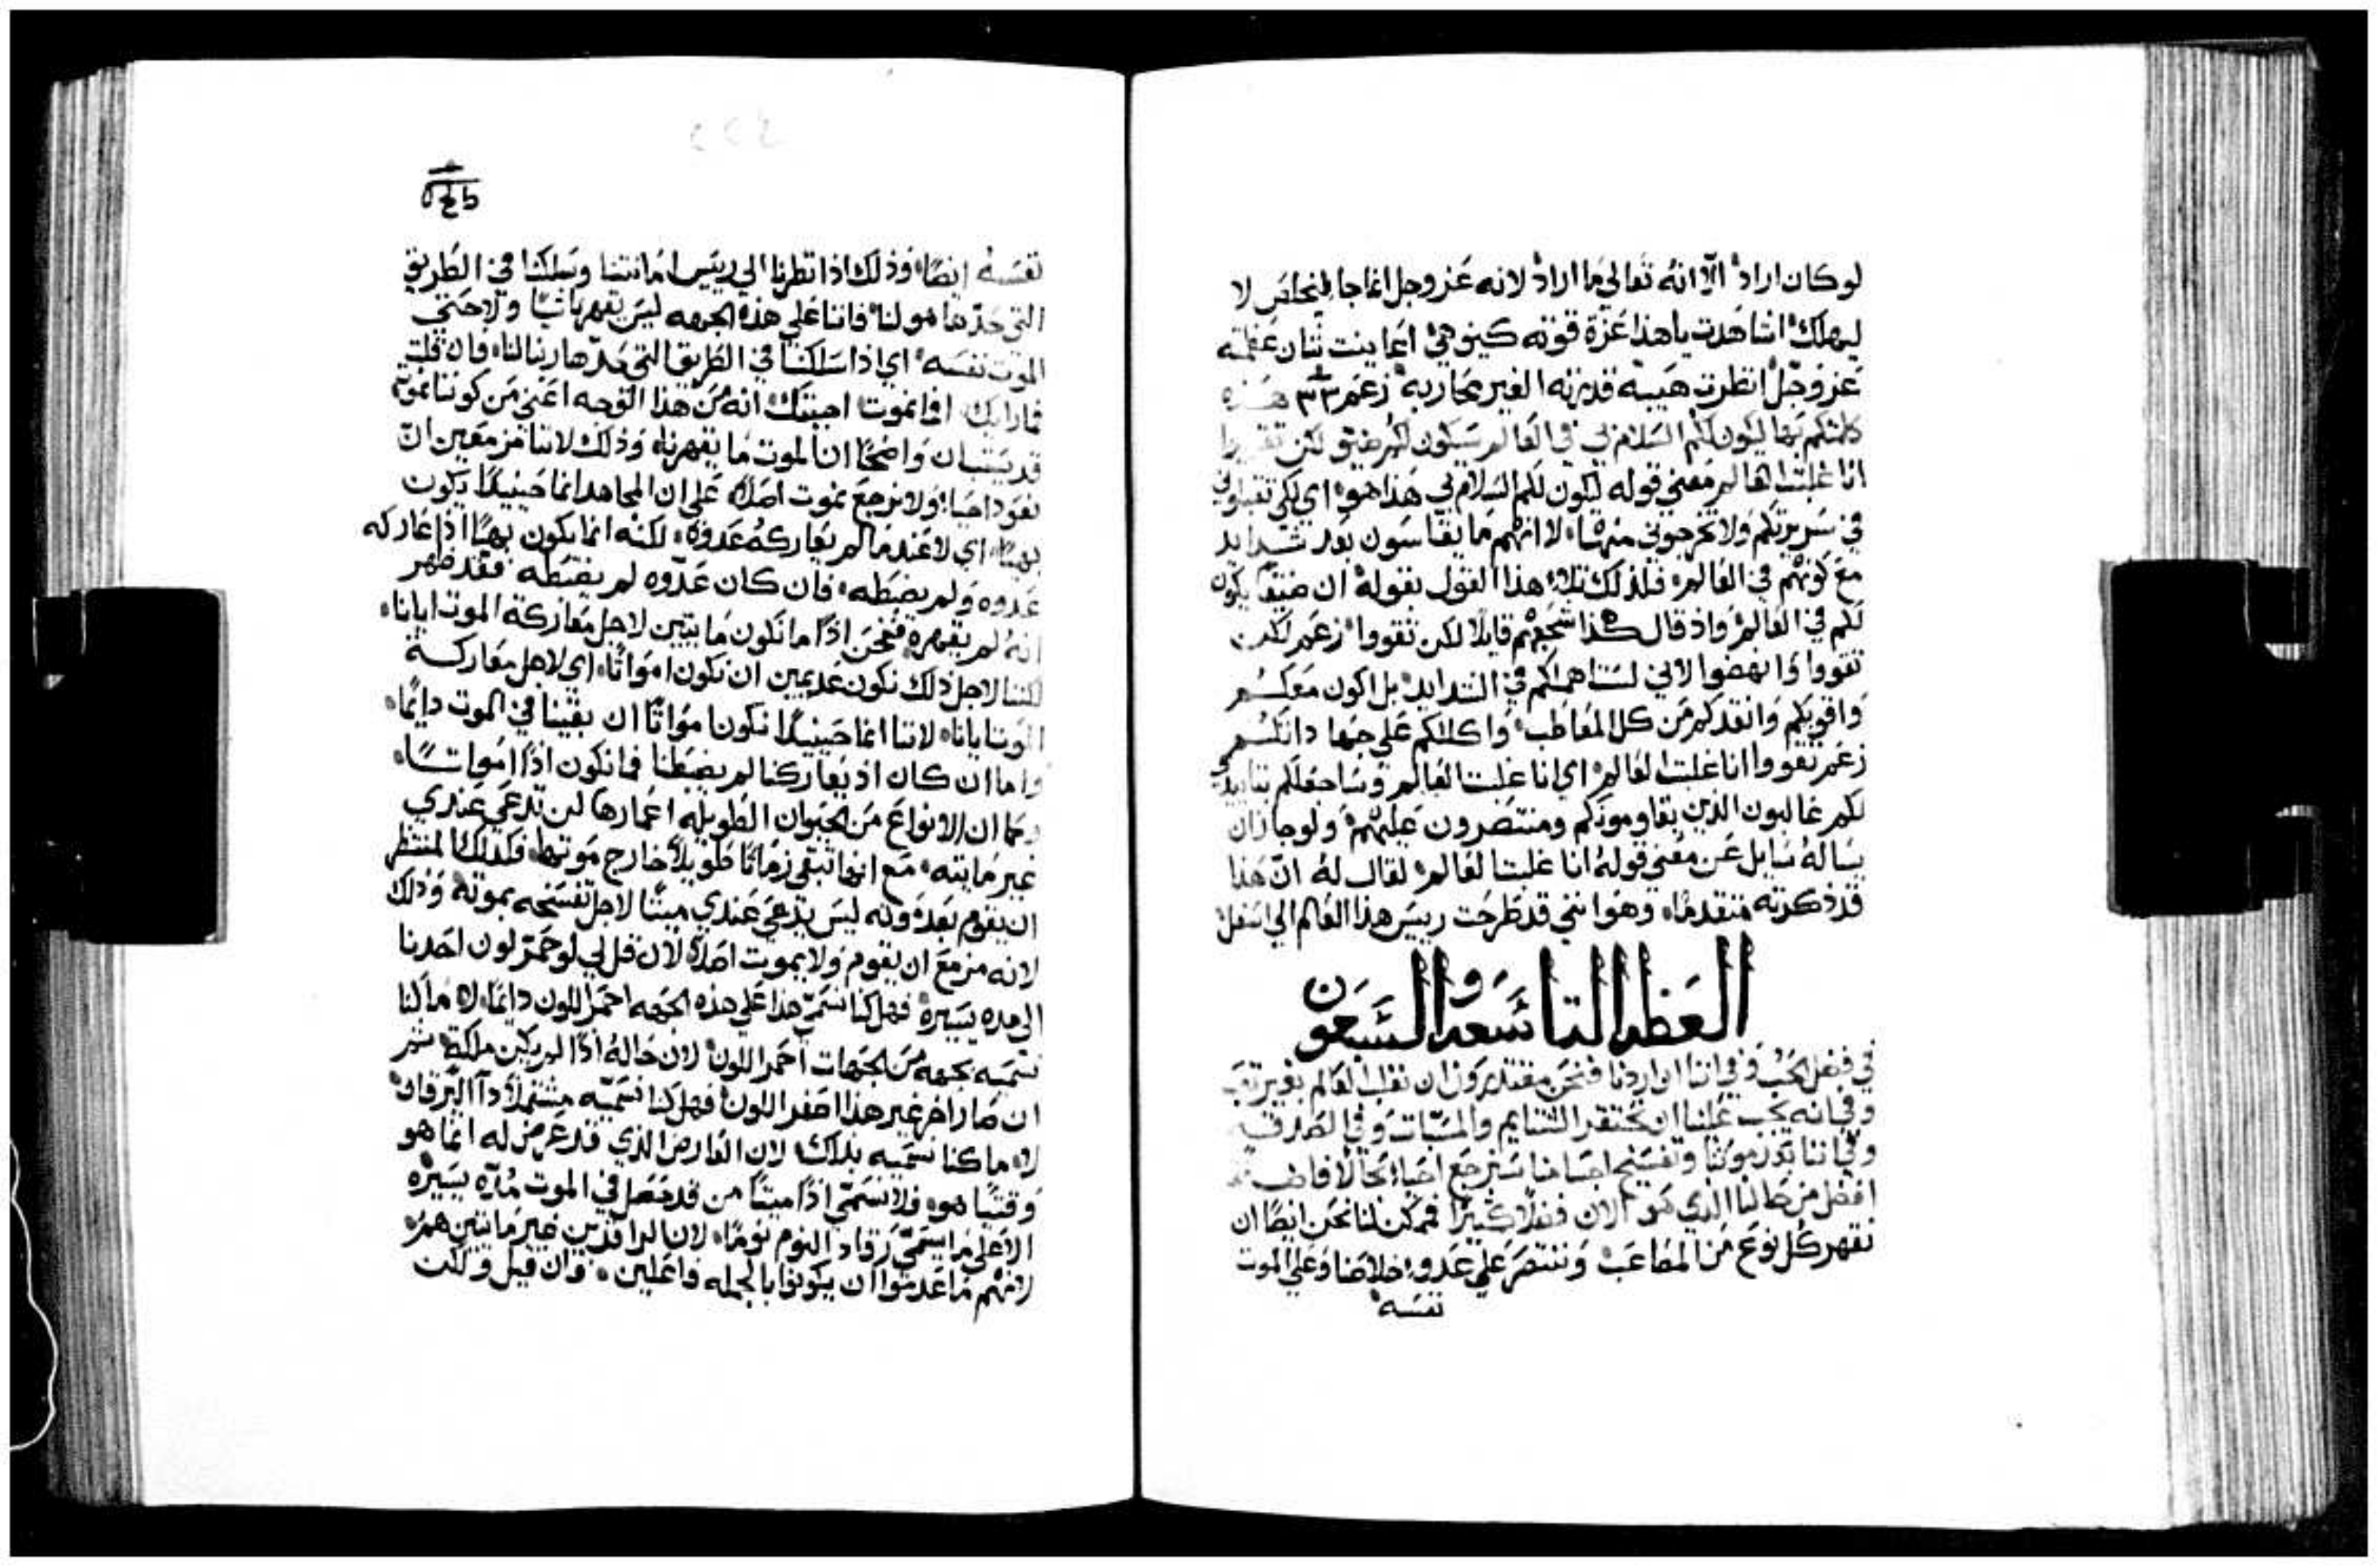 لو كان اراد الا انه تعالي ما اراد لانه عز وجل انما جا ليخلص لا
ليهلك اشاهدت ياهذا عزة قوته كيف هي اعاينت شان عظمته
عز وجل انظرت هيبة قدرته الغير محاربه زعم ٣٣ هذه
كلمتكم بها ليكون لكم السلام بي في العالم سيكون لكم ضيق لكن تقووا
انا غلبت العالم معني قوله ليكون لكم السلام بي هذا هو اي لكي تقبلوني
في سريرتكم ولا تخرجوني منها لا انهم ما يقاسون بعد شدايد
مع كونهم في العالم فلذلك تلاه هذا القول بقوله ان ضيقا يكون
لكم في العالم واذ قال هكذا شجعهم قايلا لكن تقووا زعم لكن
تقووا وانهضوا لاني لست اهملكم في الشدايد بل اكون معكم
واقويكم وانقذكم من كل المعاطب واكللكم علي جهادا تكلم
زعم تقووا انا غلبت العالم اي انا غلبت العالم وساجعلكم بتاييد
لكم غالبون الذين يقاومونكم ومنتصرون عليهم ولو جاز ان
يساله سايل عن معني قوله انا غلبت العالم لقال له ان هذا
قد ذكرته متقدما وهو انني قد طرحت رييس هذا العالم الي اسفل
العظه التاسعه والسبعون
في فضل الحب وفي اننا ان اردنا فنحن مقتدرون ان نغلب العالم بغير تعب
وفي انه يجب علينا ان نحتقر الشتايم والمسبات وفي الصدقه
وفي اننا بعد موتنا وتفسيخ اجسامنا سنرجع احياء بحال الافاضل
افضل من حالنا الذي هو الان فضلا كثيرا فممكن لنا نحن ايضا ان
نقهر كل نوع من المصاعب وننتصر علي عدو خلاصنا وعلي الموت
نفسه
نفسه ايضا وذلك اذا نظرنا الي رييس امانتنا وسلكنا في الطريق
التي حدها هو لنا فاننا علي هذه الجهه ليس يقهرنا شيا ولا حتي
الموت نفسه اي اذا سلكنا في الطريق التي حدها ربنا لنا فان قلت
فما رايك افما نموت اجبتك انه من هذا الوجه اعني من كوننا نموت
قد يستبان واضحا ان الموت ما يقهرنا وذلك لاننا مزمعين ان
نعود احيا ولا نرجع نموت اصلا علي ان المجاهد انما حينيذ يكون
بهيا اي لا عندما لم يعاركه عدوه لكنه انما يكون بهيا اذا عاركه
عدوه ولم يضبطه فان كان عدوه لم يضبطه فقد ظهر
انه لم يقهره فنحن اذا ما نكون مايتين لاجل معاركة الموت ايانا
لكننا لاجل ذلك نكون عديمين ان نكون امواتا اي لاجل معاركة
الموت ايانا لاننا انما حينيذ نكون امواتا ان بقينا في الموت دايما
واما ان كان اذ يعاركنا لم يضبطنا فما نكون اذا امواتا
وكما ان الانواع من الحيوان الطويله اعمارها لن تدعي عندي
غير مايته مع انها تبقي زمانا طويلا خارج موتها فكذلك المنتظر
ان يقوم بعد موته ليس يدعي عندي ميتا لاجل تفسخه بموته وذلك
لانه مزمع ان يقوم ولا يموت اصلا لان قل لي لو حمر لون احدنا
الي مده يسيره فهل كنا نسمي هذا علي هذه الجهه احمر اللون دايما لا ما كنا
نسميه بجهه من الجهات احمر اللون لان حاله اذا لم يكن ملكه ثم
ان صار اخر غير هذا اصفر اللون فهل كنا نسميه مشتملا دآ اليرقان
لا ما كنا نسميه بذلك لان العارض الذي قد عرض له انما هو
وقتيا هو فلا نسمي اذا ميتا من قد حصل في الموت مده يسيره
الا علي ما يسمي رقاد النوم نوما لان الراقدين غير مايتين هم
لانهم ما عدموا ان يكونوا بالجمله فاعلين وان قيل وكنت